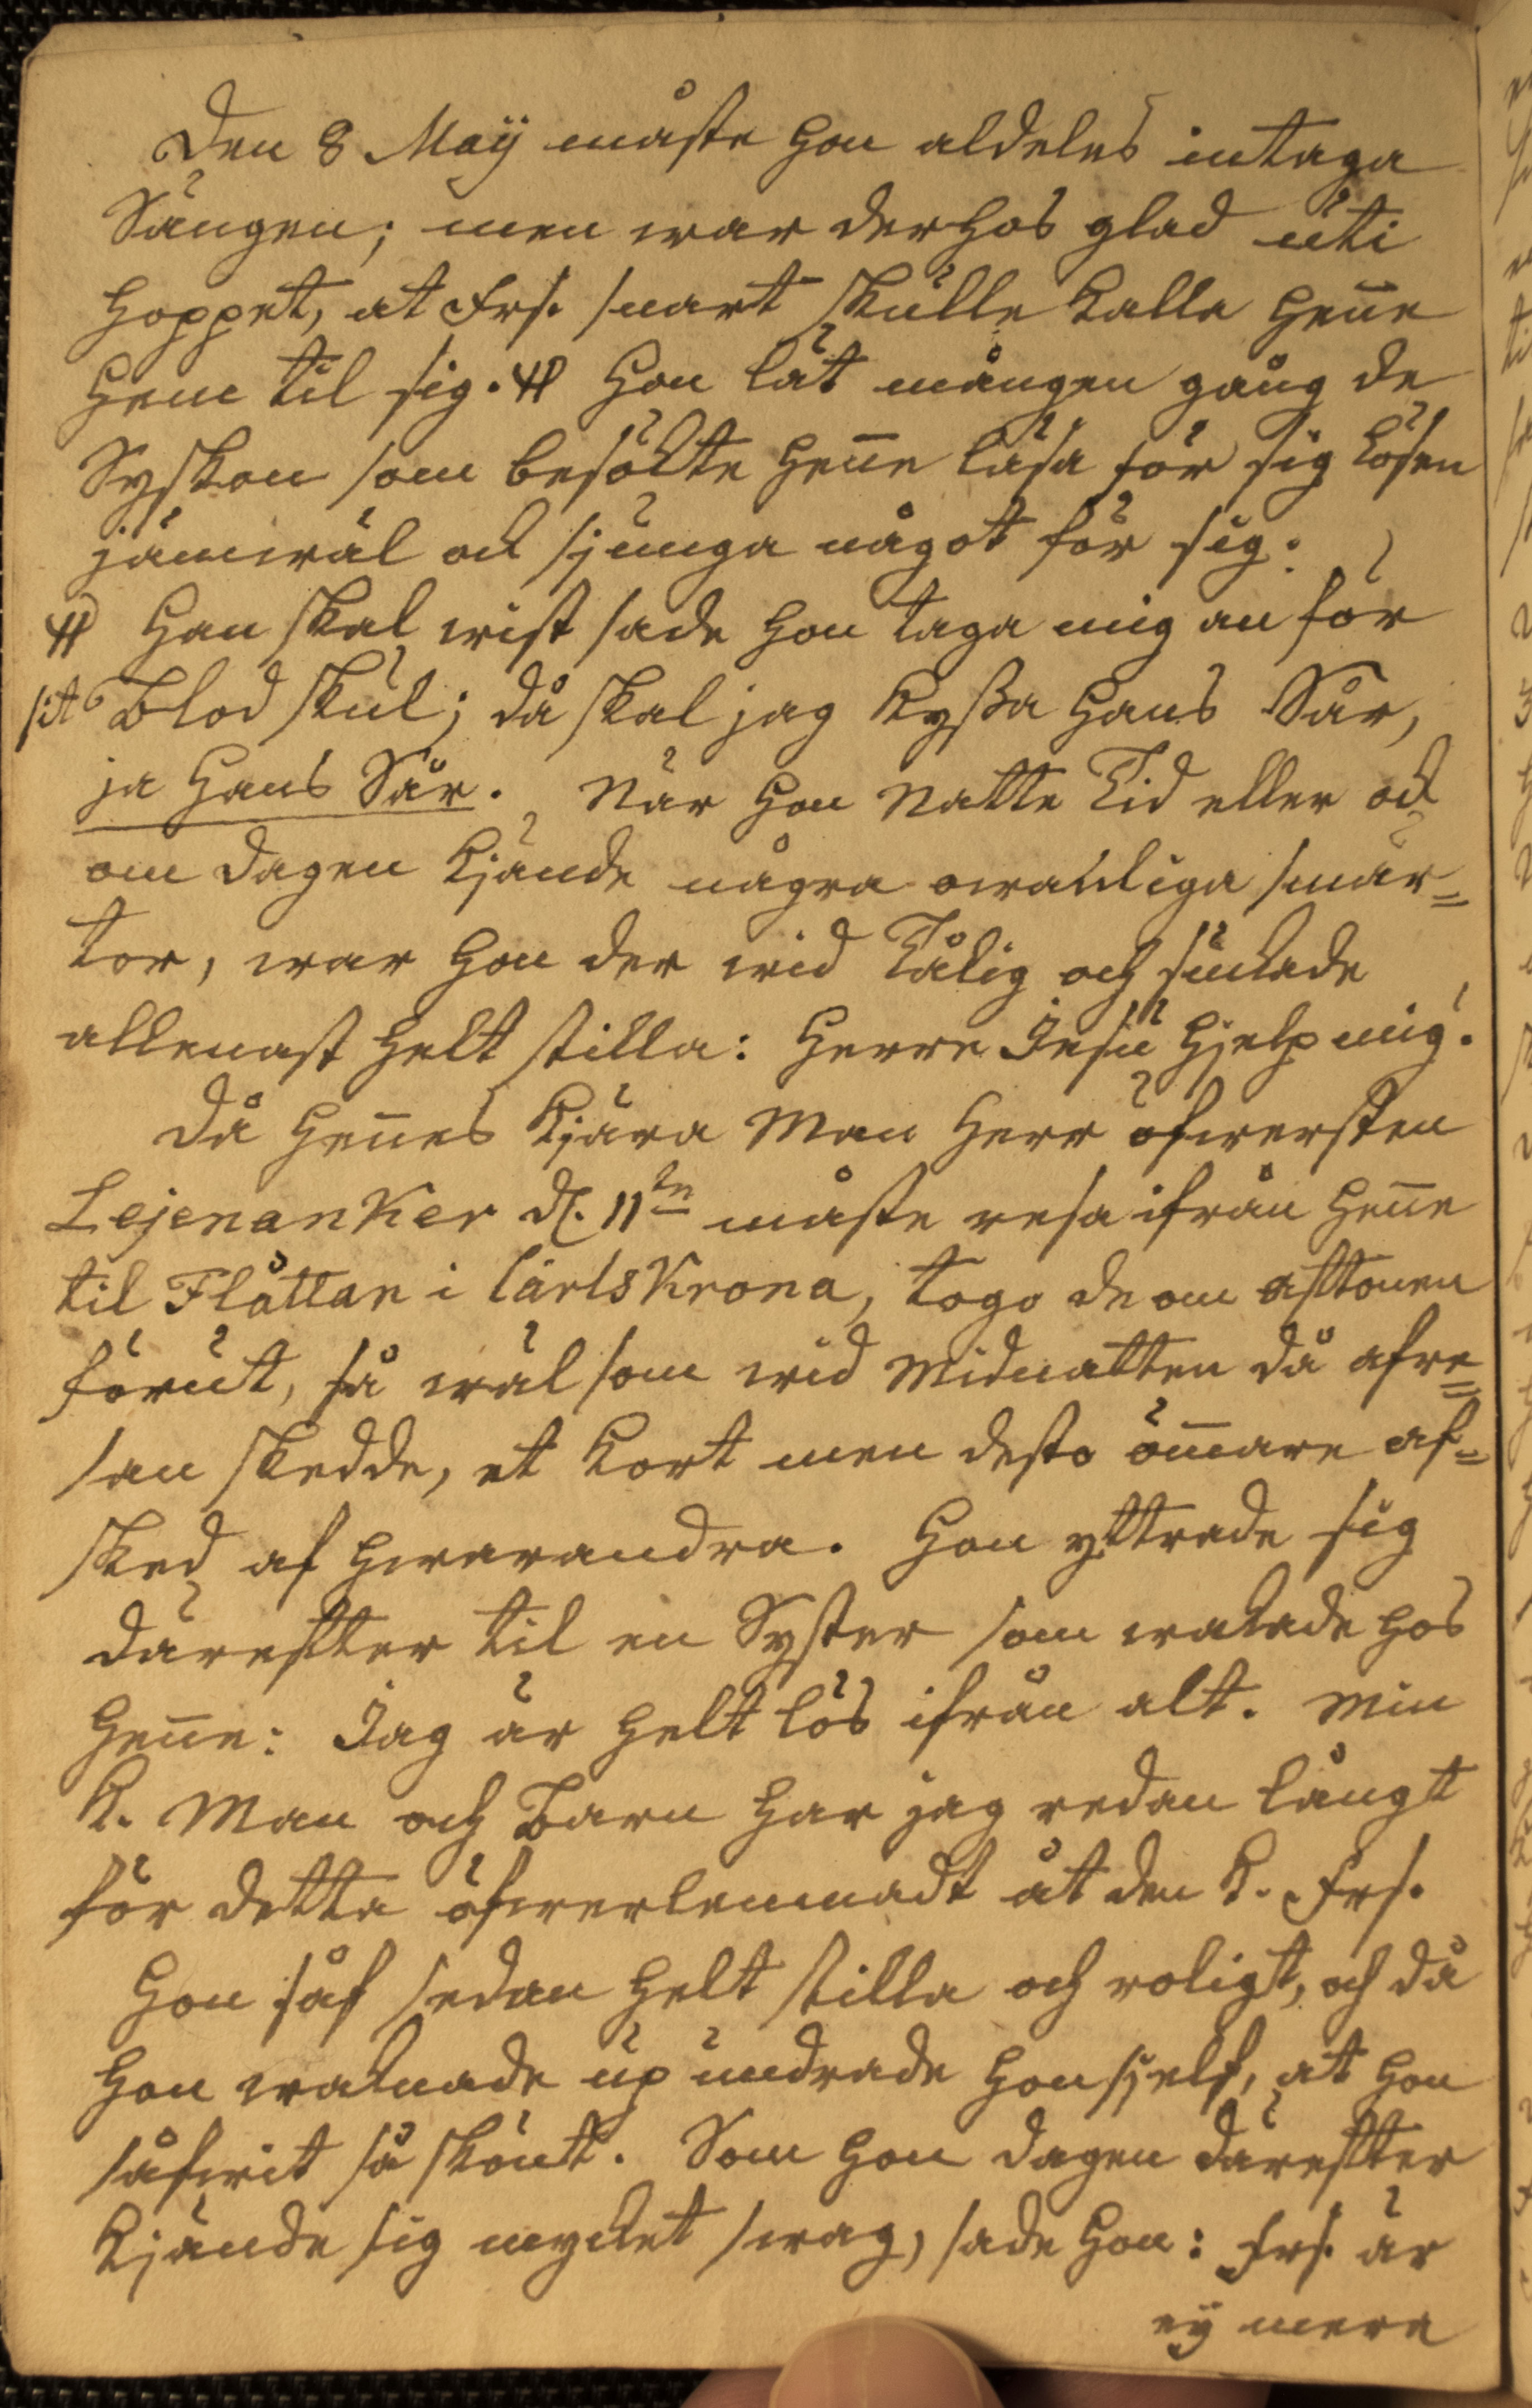 Den 8 Maÿ måste hon aldeles intaga
Sängen; men war derhos glad uti
hoppet, at Frs. snart skulle kalla heñe
hem til sig. # Hon lät mången gång de
Syskon som besökte heñe läsa för sig Lösen
jämwäl ock sjunga något för sig.
# Han skal wist sade hon taga mig an för
sit Blod skul; då skal jag kyssa Hans Sår,
ja Hans Sår. När hon Natte Tid eller ock
om dagen kjände några owanliga smär=
tor, war hon der wid Tålig och suckade
allenast helt stilla: Herre Jesu hjelp mig!
Då heñes kjära Man Herr öfwersten
Lejonanker d. 11te måste resa ifrån heñe
til Flåttan i Carlskrona, togo de om afftonen
förut, så wäl som wid Midnatten då afre=
san skedde, et kort men desto öm̃are af=
sked af hwarandra. Hon yttrade sig
därefter til en Syster som wakade hos
heñe: Jag är helt lös ifrån alt. Min
k. Man och Barn har jag redan långt
för detta öfwerlemnadt åt den k. Frs.
Hon såf sedan helt stilla och roligt, och då
hon waknade up undrade hon sjelf, at hon
såfwit så skönt. Som hon dagen därefter
kjände sig mycket swag, sade hon: Frs. är
eÿ mera